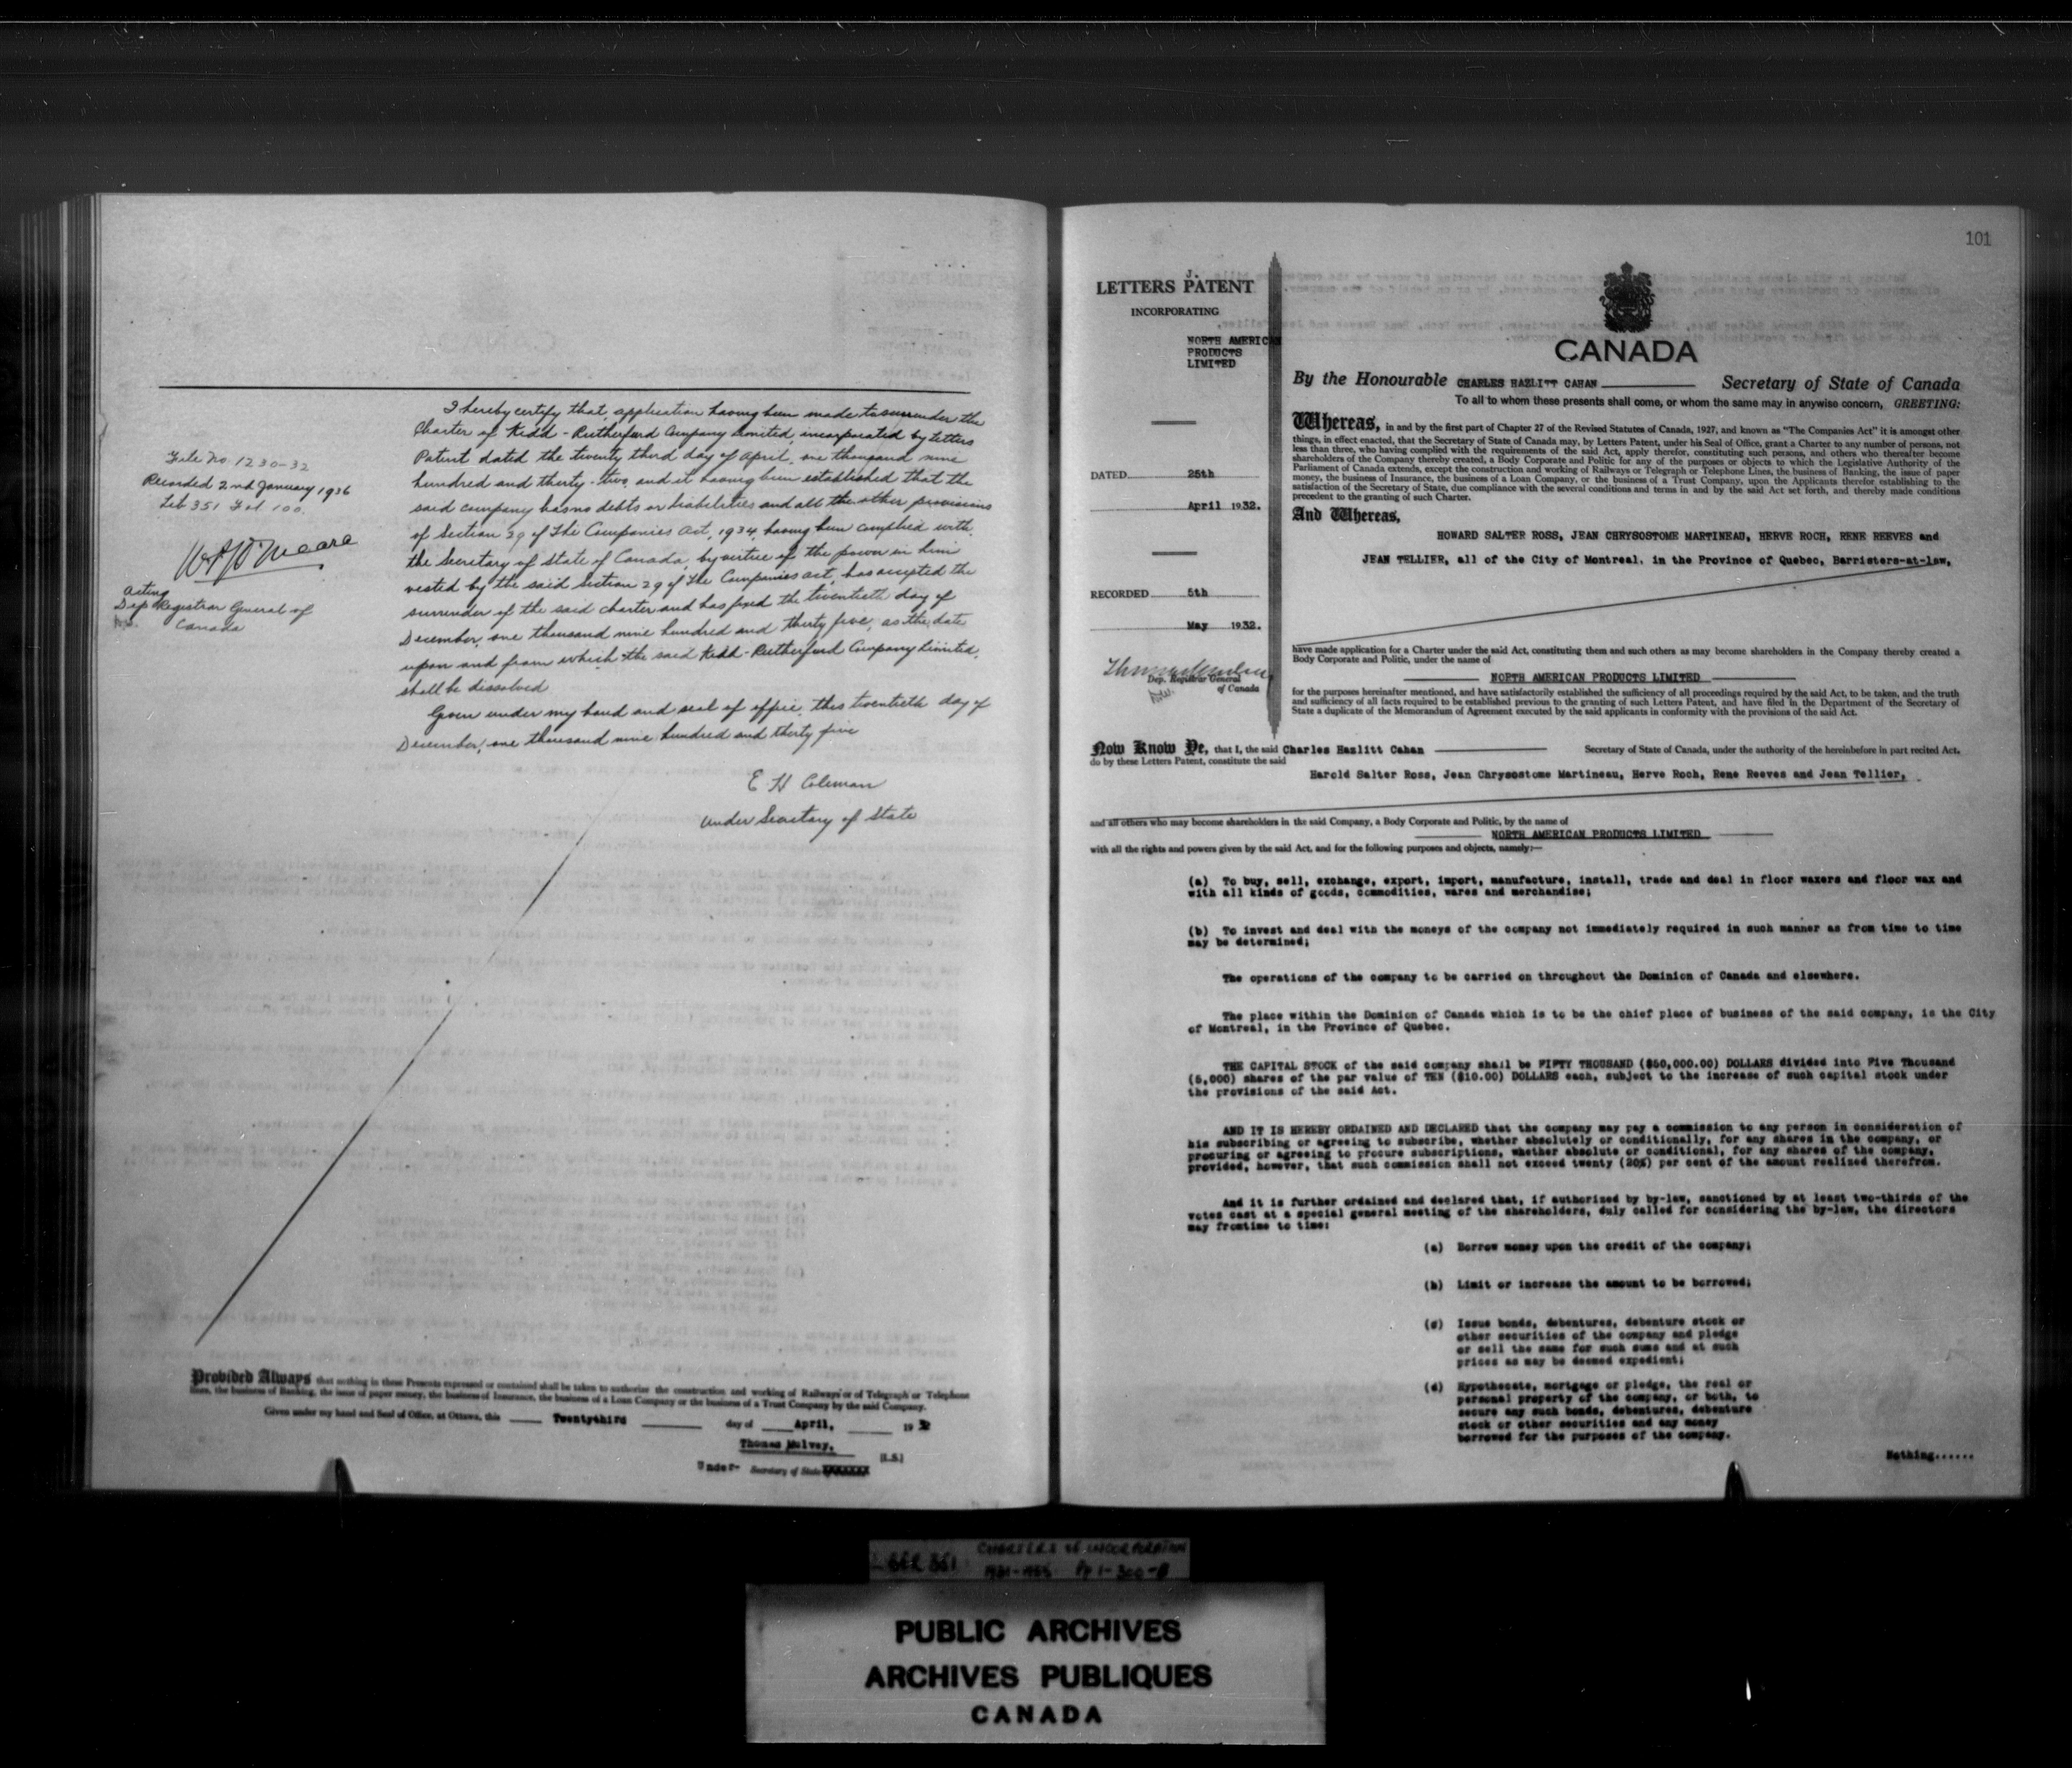 I hereby certify that, application having been made to surrender the
Charter of Kidd-Rutherford Company Limited, incorporated by Letters
Patent dated the twenty third day of April, one thousand nine
hundred and thirty-two, and it having been established that the
said company has no debts or liabilities and all the other provisions
of Section 29 of The Companies Act, 1934, having been complied with,
the Secretary of State of Canada, by virtue of the power in him
vested by the said Section 29 of The Companies Act, has accepted the
surrender of the said charter and has fixed the twentieth day of
December, one thousand nine hundred and thirty five, as the date
upon and from which the said Kidd-Rutherford Company Limited,
shall be dissolved
Given under my hand and seal of office this twentieth day of
December, one thousand nine hundred and thirty five
E H Coleman
Under Secretary of State
File No. 1230-32
Recorded 2nd January 1936
Lib 351 Fol 100.
Acting
Dep Registrar General of
Canada
Provided Always that nothing in these Presents expressed or contained shall be taken to authorize the construction and working of Railways or of Telegraph or Telephone
lines, the business of Banking, the issue of paper money, the business of Insurance, the business of a Loan Company or the business of a Trust Company by the said Company.
Given under my hand and Seal of Office, at Ottawa, this Twentythird day of April, 1932
Thomas Mulvey,
[L.S.]
Under- Secretary of State
101
J.
LETTERS PATENT
INCORPORATING
NORTH AMERICAN
PRODUCTS
LIMITED
DATED 25th
April 1932.
RECORDED 5th
May 1932.
Dep. Registrar General
of Canada
CANADA
By the Honourable CHARLES HAZLITT CAHAN Secretary of State of Canada
To all to whom these presents shall come, or whom the same may in anywise concern, GREETING:
Whereas, in and by the first part of Chapter 27 of the Revised Statutes of Canada, 1927, and known as "The Companies Act" it is amongst other
things, in effect enacted, that the Secretary of State of Canada may, by Letters Patent, under his Seal of Office, grant a Charter to any number of persons, not
less than three, who having complied with the requirements of the said Act, apply therefor, constituting such persons, and others who thereafter become
shareholders of the Company thereby created, a Body Corporate and Politic for any of the purposes or objects to which the Legislative Authority of the
Parliament of Canada extends, except the construction and working of Railways or Telegraph or Telephone Lines, the business of Banking, the issue of paper
money, the business of Insurance, the business of a Loan Company, or the business of a Trust Company, upon the Applicants therefor establishing to the
satisfaction of the Secretary of State, due compliance with the several conditions and terms in and by the said Act set forth, and thereby made conditions
precedent to the granting of such Charter.
And Whereas,
HOWARD SALTER ROSS, JEAN CHRYSOSTOME MARTINEAU, HERVE ROCH, RENE REEVES and
JEAN TELLIER, all of the City of Montreal, in the Province of Quebec, Barristers-at-law,
have made application for a Charter under the said Act, constituting them and such others as may become shareholders in the Company thereby created a
Body Corporate and Politic, under the name of
NORTH AMERICAN PRODUCTS LIMITED
for the purposes hereinafter mentioned, and have satisfactorily established the sufficiency of all proceedings required by the said Act, to be taken, and the truth
and sufficiency of all facts required to be established previous to the granting of such Letters Patent, and have filed in the Department of the Secretary of
State a duplicate of the Memorandum of Agreement executed by the said applicants in conformity with the provisions of the said Act.
Now Know Ye, that I, the said Charles Hazlitt Cahan Secretary of State of Canada, under the authority of the hereinbefore in part recited Act,
do by these Letters Patent, constitute the said
Harold Salter Ross, Jean Chrysostome Martineau, Herve Roch, Rene Reeves and Jean Tellier,
and all others who may become shareholders in the said Company, a Body Corporate and Politic, by the name of
NORTH AMERICAN PRODUCTS LIMITED
with all the rights and powers given by the said Act, and for the following purposes and objects, namely:—
(a) To buy, sell, exchange, export, import, manufacture, install, trade and deal in floor waxers and floor wax and
with all kinds of goods, commodities, wares and merchandise;
(b) To invest and deal with the moneys of the company not immediately required in such manner as from time to time
may be determined;
The operations of the company to be carried on throughout the Dominion of Canada and elsewhere.
The place within the Dominion of Canada which is to be the chief place of business of the said company, is the City
of Montreal, in the Province of Quebec.
THE CAPITAL STOCK of the said company shall be FIFTY THOUSAND ($50,000.00) DOLLARS divided into Five Thousand
(5,000) shares of the par value of TEN ($10.00) DOLLARS each, subject to the increase of such capital stock under
the provisions of the said Act.
AND IT IS HEREBY ORDAINED AND DECLARED that the company may pay a commission to any person in consideration of
his subscribing or agreeing to subscribe, whether absolutely or conditionally, for any shares in the company, or
procuring or agreeing to procure subscriptions, whether absolute or conditional, for any shares of the company,
provided, however, that such commission shall not exceed twenty (20%) per cent of the amount realized therefrom.
And it is further ordained and declared that, if authorized by by-law, sanctioned by at least two-thirds of the
votes cast at a special general meeting of the shareholders, duly called for considering the by-law, the directors
may fromtime to time:
(a) Borrow money upon the credit of the company;
(b) Limit or increase the amount to be borrowed;
(c) Issue bonds, debentures, debenture stock or
other securities of the company and pledge
or sell the same for such sums and at such
prices as may be deemed expedient;
(d) Hypothecate, mortgage or pledge, the real or
personal property of the company, or both, to
secure any such bonds, debentures, debenture
stock or other securities and any money
borrowed for the purposes of the company.
Nothing......
CHARTERS of INCORPORATION
PUBLIC ARCHIVES
ARCHIVES PUBLIQUES
CANADA